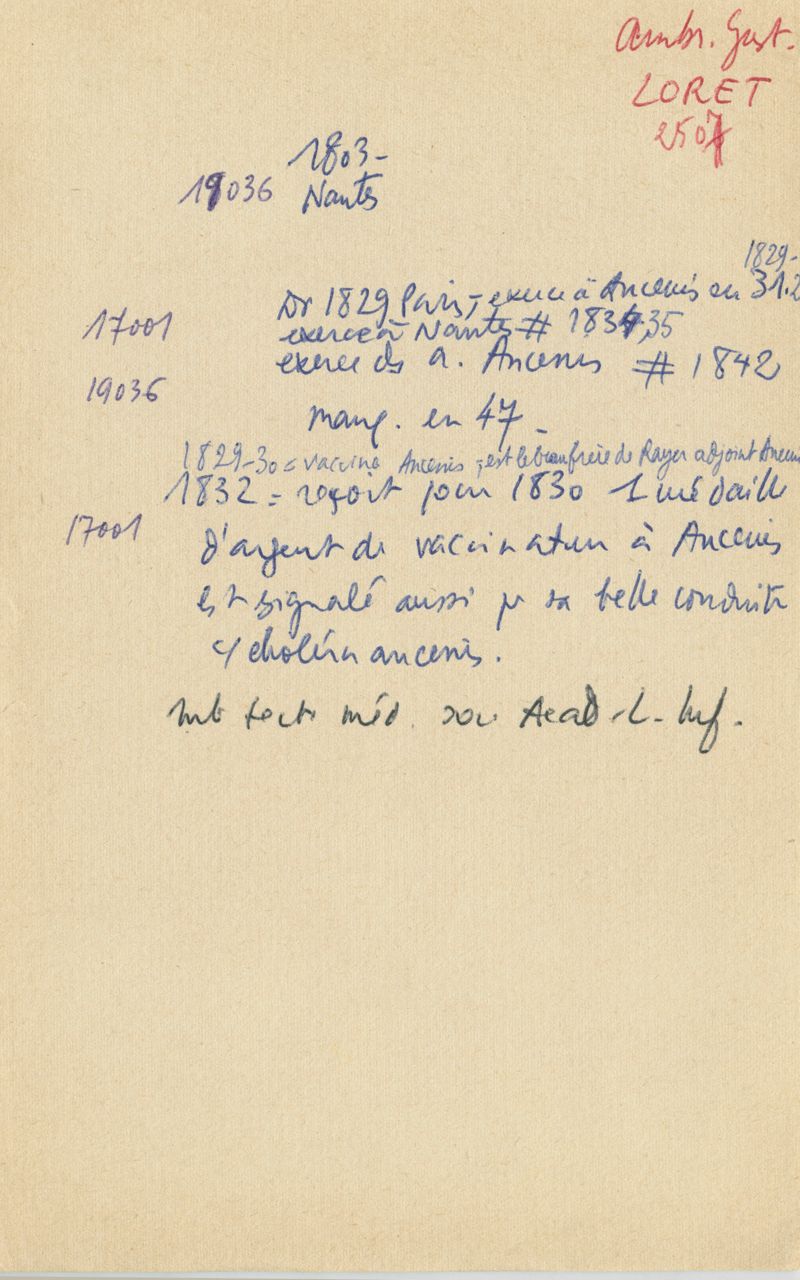 Ambr. Gust.
LORET
2507
1803-
19036 Nantes
1829-
Dr 1829 Paris, exerce à Ancenis en 31.2
17001 exerce à Nantes # 1834,35
exerce ds a. Ancenis # 1842
19036
manq. en 47 -
1829-30 = vaccine Ancenis ; est le beau frère de Rayer adjoint Ancenis
1832 = reçoit pour 1830 1 médaille
17001 d'argent de vaccination à Ancenis
est signalé aussi pr sa belle conduite
c/ choléra ancenis.
méd. soc. Acad. L. Inf.